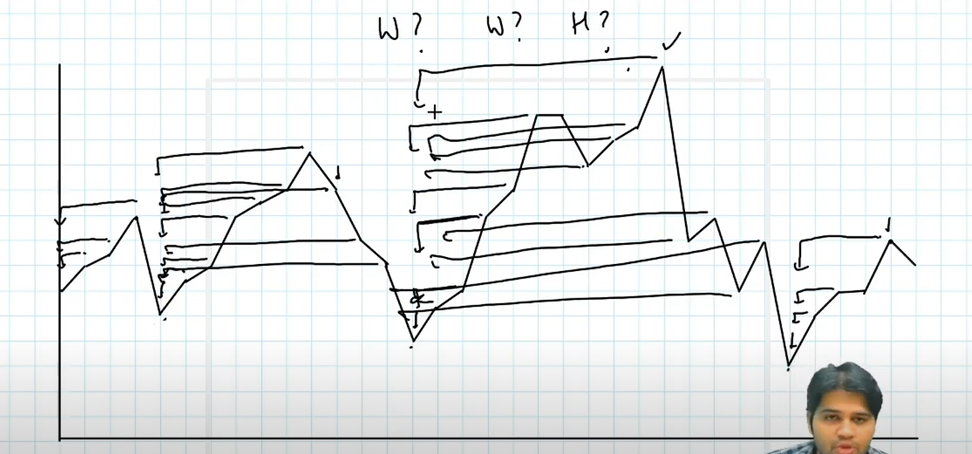 W? W? H?